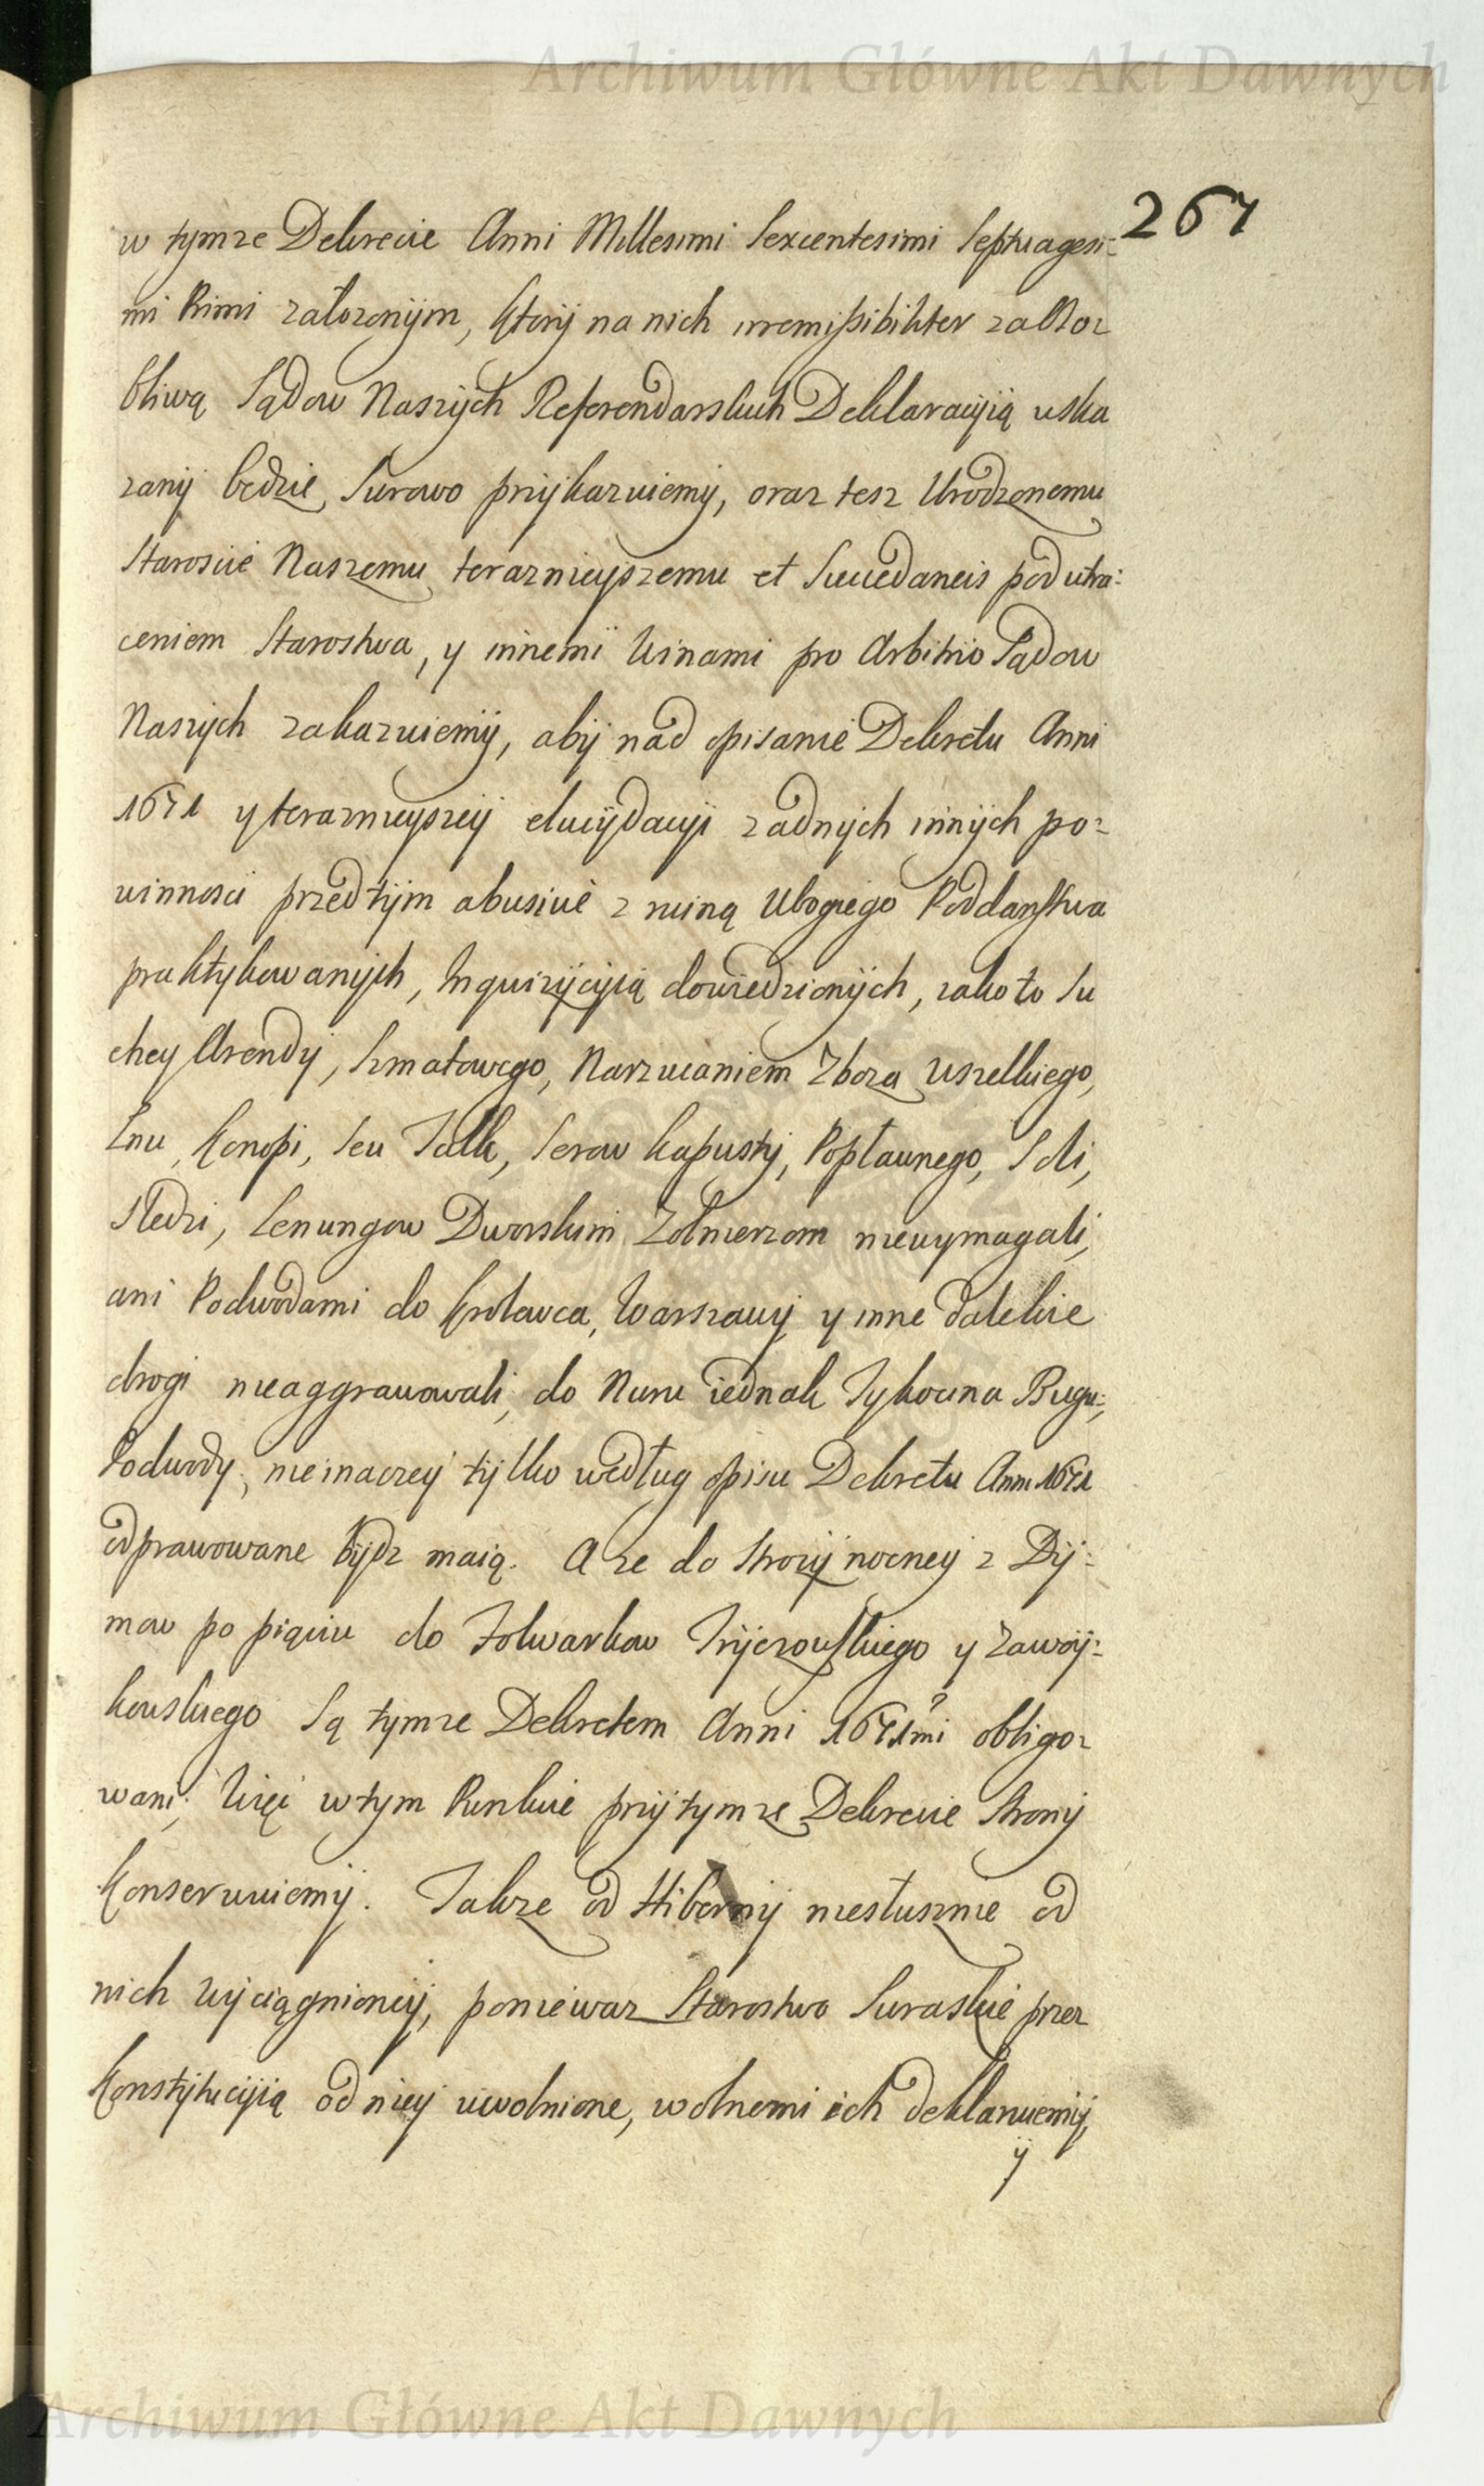 Archiwum Główne Akt Dawnych
267
w tymze Dekrecie Anni Millesimi Sexcentesimi Septuagesi-
mi Primi załozonÿm, ktorÿ na nich irremissibiliter za Osoz
bliwą Sądow Naszÿch Referendarskich Deklaracyią uska
zanÿ będzie, Surowo przÿkazuiemÿ, oraz tesz Urodzonemu
Staroscie Naszemu teraznieyszemu et Succedaneis pod utra:
ceniem Starostwa, y innemi Winami pro Arbitrio Sądow
Naszÿch zakazuiemÿ, abÿ nad opisanie Dekretu Anni
1671 y teraznieyszeÿ elucÿdacÿi zadnÿch innÿch po-
winnosci przedtÿm abusivè z ruiną Ubogiego Poddanstwa
praktykowanÿch, Inquizÿcÿią dowiedzionÿch, iako to Su
chey Arendÿ, Szmatowego, Narzucaniem Zboza Wszelkiego,
Lnu, Konopi, seu Talk, Serow Kapustÿ, Popławnego, Soli,
Sledzi, Lenungow Dworskim Zołnierzom niewymagali,
ani Podwodami do Krolewca, Warszawÿ y inne dalekie
drogi nieaggrawowali, do Nuru iednak Tykocina Bugu,
Podwodÿ, nieinaczeÿ tÿlko według opisu Dekretu Anni 1671
odprawowane bÿdz maią. A ze do Strozÿ nocneÿ z Dÿ-
mow po piąciu do Folwarkow Trÿczowskiego y Zawoÿ-
kowskiego Są tymze Dekretem Anni 1671mi obligo-
wani; Więc w tym Punkcie przÿ tymze Dekrecie Stronÿ
Konserwuiemÿ. Takze od Hibernÿ niesłusznie od
nich wÿciągnioneÿ, poniewaz Starostwo Suraskie przez
Konstÿtucÿią od nieÿ uwolnione, wolnemi ich deklaruiemÿ,
ÿ
Archiwum Główne Akt Dawnych